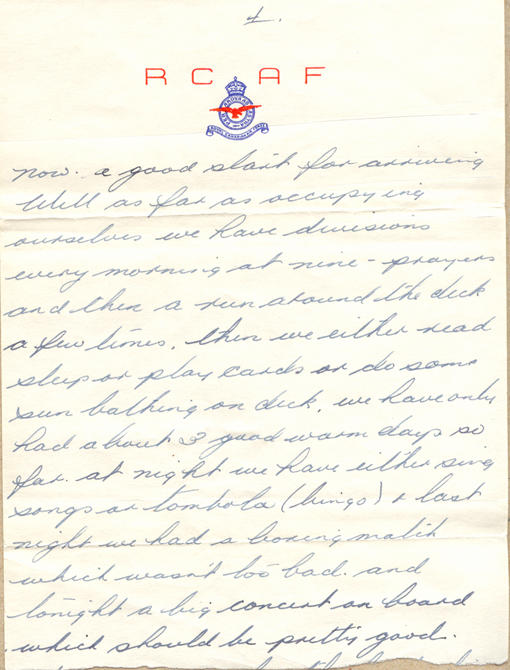 4.
RCAF
ROYAL CANADIAN AIR FORCE
now. a good start for arriving
Well as far as occupying
ourselves we have divisions
every morning at nine - prayers
and then a run around the deck
a few times, then we either read
sleep or play cards or do some
sun bathing on deck, we have only
had about 3 good warm days so
far. at night we have either sing
songs or tombola (bingo) & last
night we had a boxing match
which wasn't too bad. and
tonight a big concert on board
which should be pretty good.